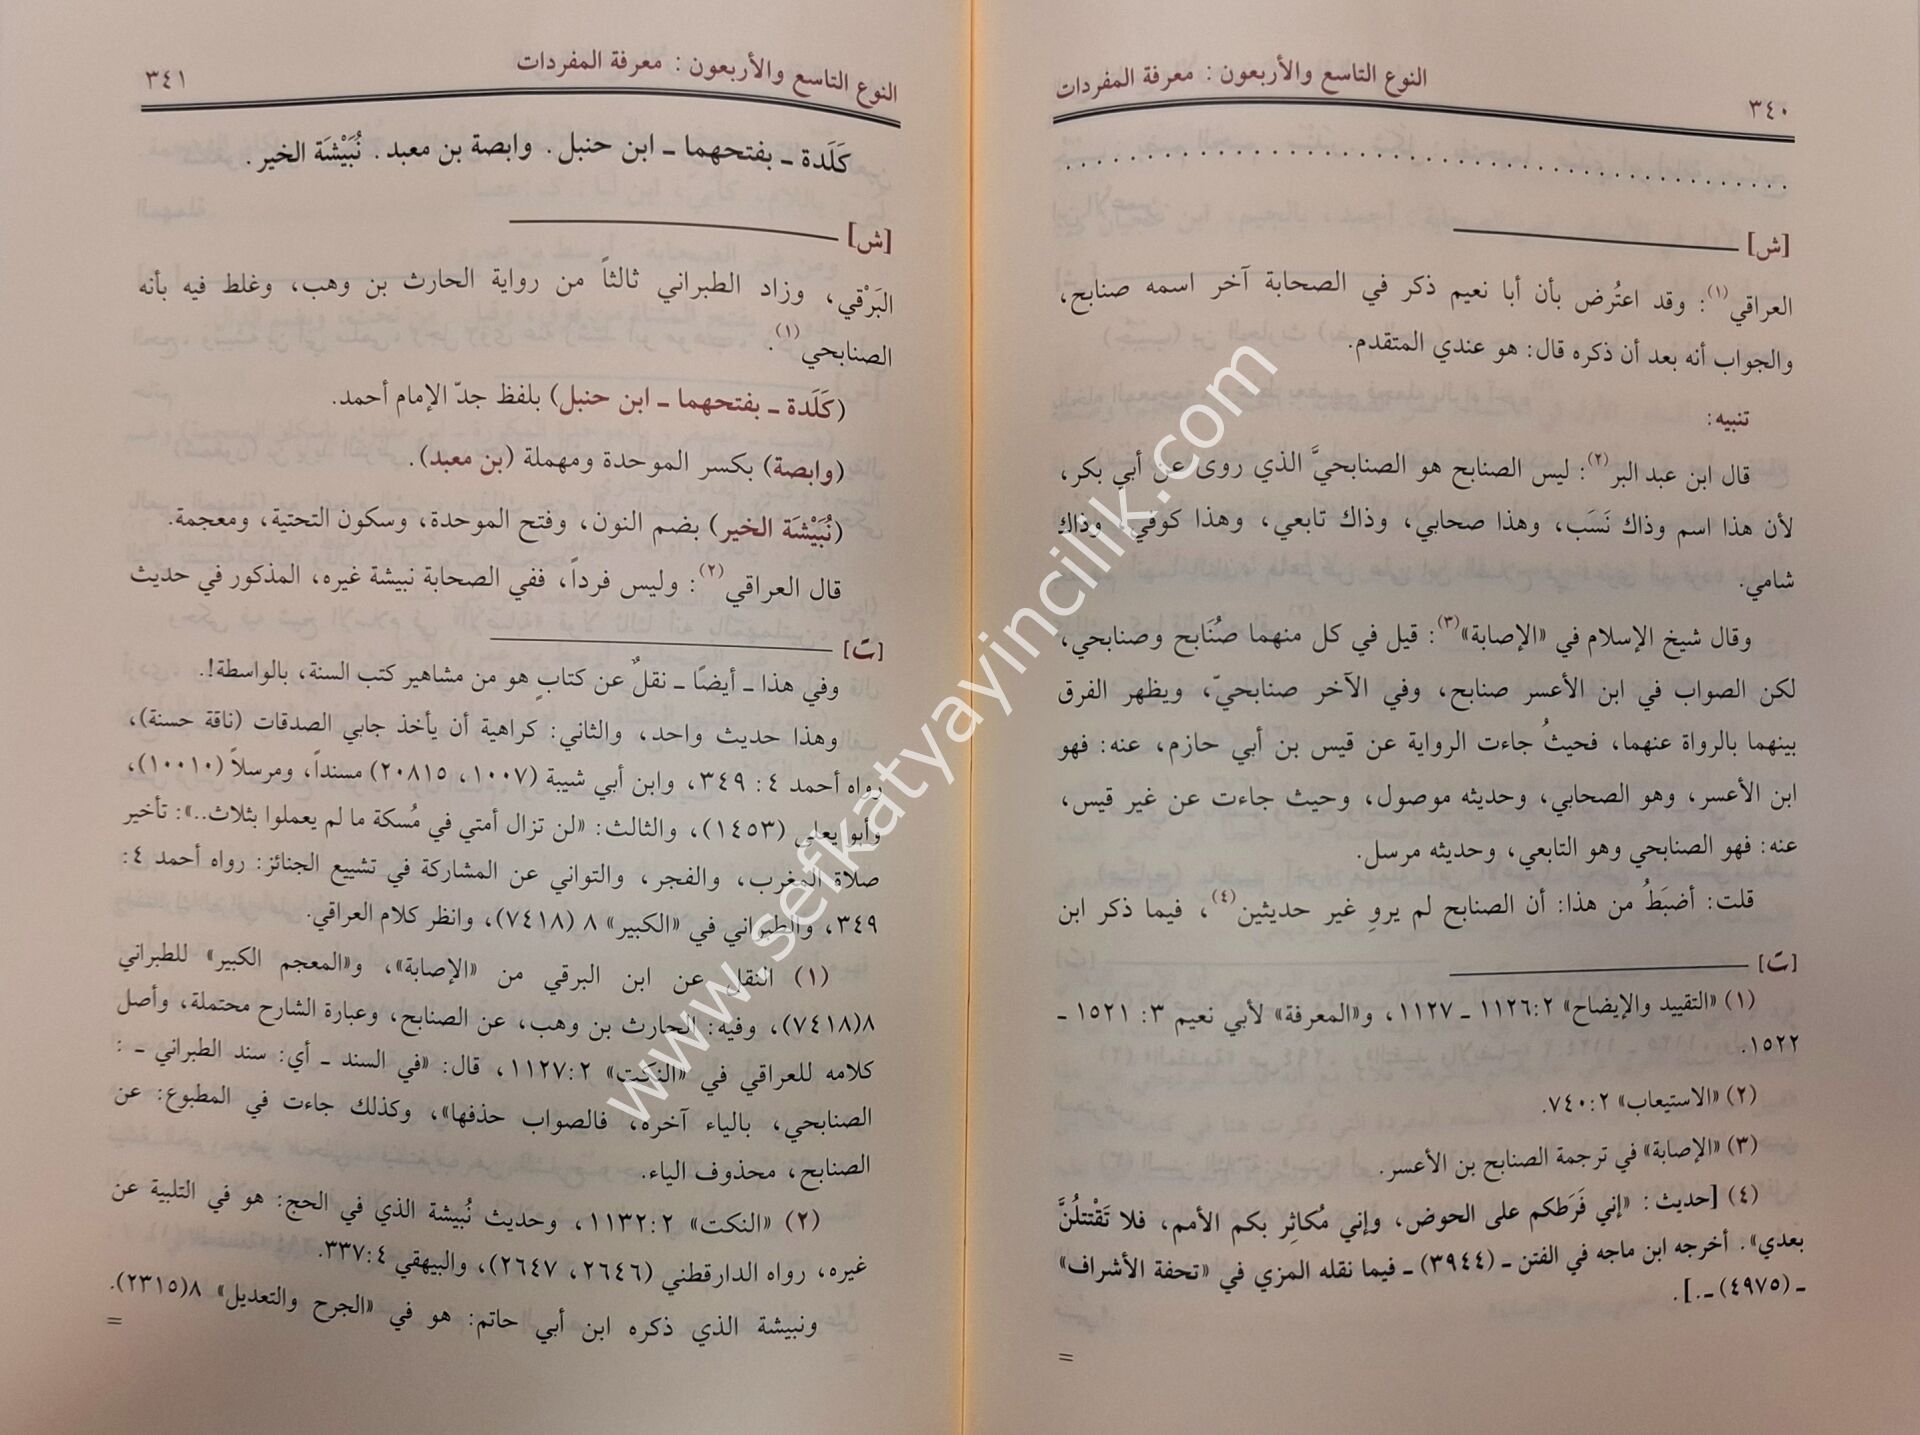 ٣٤٠
النوع التاسع والأربعون : معرفة المفردات
. . . . . . . . . . . . . . . . . . . . . . . . . . . . . . . . . . . . .
[ش]
العراقي(١): وقد اعتُرض بأن أبا نعيم ذكر في الصحابة آخر اسمه صنابح،
والجواب أنه بعد أن ذكره قال: هو عندي المتقدم.
تنبيه:
قال ابن عبد البر(٢): ليس الصنابح هو الصنابحيَّ الذي روى عن أبي بكر،
لأن هذا اسم وذاك نَسَب، وهذا صحابي، وذاك تابعي، وهذا كوفي، وذاك
شامي.
وقال شيخ الإسلام في «الإصابة»(٣): قيل في كل منهما صُنَابح وصنابحي،
لكن الصواب في ابن الأعسر صنابح، وفي الآخر صنابحيّ، ويظهر الفرق
بينهما بالرواة عنهما، فحيثُ جاءت الرواية عن قيس بن أبي حازم، عنه: فهو
ابن الأعسر، وهو الصحابي، وحديثه موصول، وحيث جاءت عن غير قيس،
عنه: فهو الصنابحي وهو التابعي، وحديثه مرسل.
قلت: أضبَطُ من هذا: أن الصنابح لم يروِ غير حديثين(٤)، فيما ذكر ابن
[ت]
(١) «التقييد والإيضاح» ٢:‏١١٢٦ ـ ١١٢٧، و«المعرفة» لأبي نعيم ٣: ١٥٢١ ـ
١٥٢٢.
(٢) «الاستيعاب» ٢:‏٧٤٠.
(٣) «الإصابة» في ترجمة الصنابح بن الأعسر.
(٤) [حديث: «إني فَرَطكم على الحوض، وإني مُكاثِر بكم الأمم، فلا تَقْتتلُنَّ
بعدي». أخرجه ابن ماجه في الفتن ـ (٣٩٤٤) ـ فيما نقله المزي في «تحفة الأشراف»
ـ (٤٩٧٥) ـ.].
=
النوع التاسع والأربعون : معرفة المفردات
٣٤١
كَلَدة ـ بفتحهما ـ ابن حنبل. وابصة بن معبد. نُبَيْشَة الخير.
[ش]
البَرْقي، وزاد الطبراني ثالثاً من رواية الحارث بن وهب، وغلط فيه بأنه
الصنابحي(١).
(كَلَدة ـ بفتحهما ـ ابن حنبل) بلفظ جدّ الإمام أحمد.
(وابصة) بكسر الموحدة ومهملة (بن معبد).
(نُبَيْشَة الخير) بضم النون، وفتح الموحدة، وسكون التحتية، ومعجمة.
قال العراقي(٢): وليس فرداً، ففي الصحابة نبيشة غيره، المذكور في حديث
[ت]
وفي هذا ـ أيضاً ـ نقلٌ عن كتابٍ هو من مشاهير كتب السنة، بالواسطة!.
وهذا حديث واحد، والثاني: كراهية أن يأخذ جابي الصدقات (ناقة حسنة)،
رواه أحمد ٤: ٣٤٩، وابن أبي شيبة (١٠٠٧، ٢٠٨١٥) مسنداً، ومرسلاً (١٠٠١٠)،
وأبو يعلى (١٤٥٣)، والثالث: «لن تزال أمتي في مُسكة ما لم يعملوا بثلاث..»: تأخير
صلاة المغرب، والفجر، والتواني عن المشاركة في تشييع الجنائز: رواه أحمد ٤:
٣٤٩، والطبراني في «الكبير» ٨ (٧٤١٨)، وانظر كلام العراقي.
(١) النقل عن ابن البرقي من «الإصابة»، و«المعجم الكبير» للطبراني
٨(٧٤١٨)، وفيه: الحارث بن وهب، عن الصنابح، وعبارة الشارح محتملة، وأصل
كلامه للعراقي في «النكت» ٢:‏١١٢٧، قال: «في السند ـ أي: سند الطبراني ـ :
الصنابحي، بالياء آخره، فالصواب حذفها»، وكذلك جاءت في المطبوع: عن
الصنابح، محذوف الياء.
(٢) «النكت» ٢:‏١١٣٢، وحديث نُبيشة الذي في الحج: هو في التلبية عن
غيره، رواه الدارقطني (٢٦٤٦، ٢٦٤٧)، والبيهقي ٤:‏٣٣٧.
ونبيشة الذي ذكره ابن أبي حاتم: هو في «الجرح والتعديل» ٨(٢٣١٥).
=
www.sefkatyayincilik.com